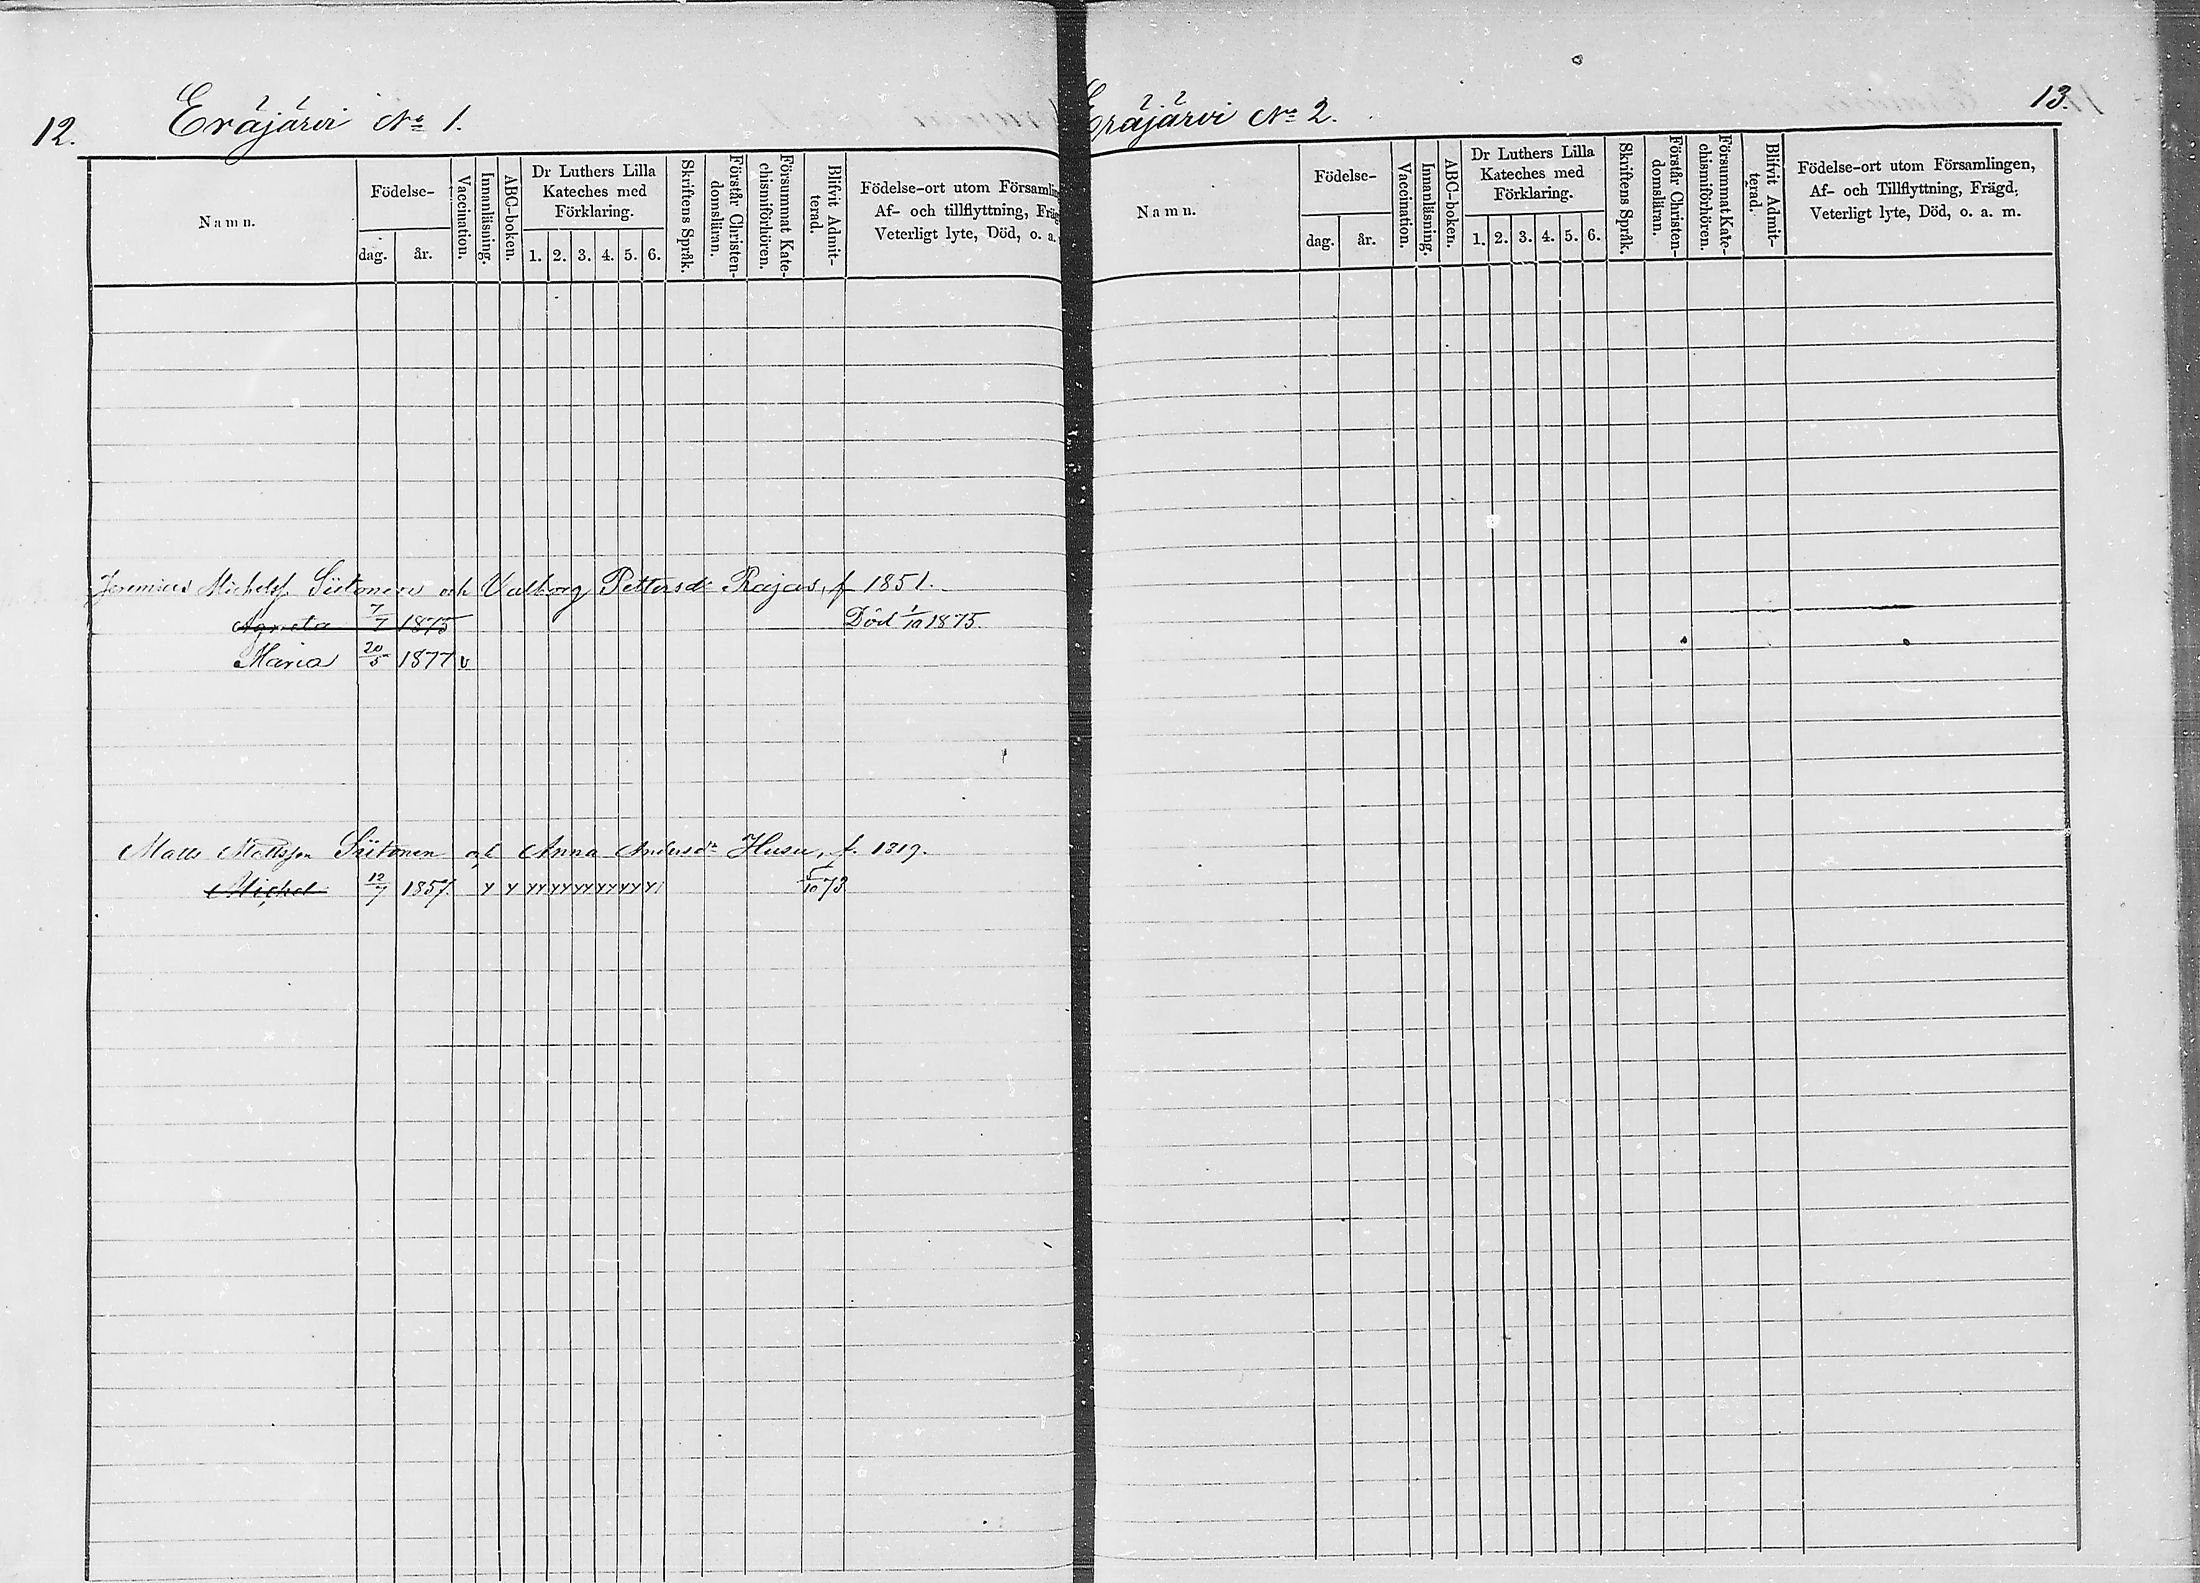 12.
Eräjärvi No 1.
Namn.
Födelse-
dag.
år.
Vaccination.
Innanläsning.
ABC-boken.
Dr Luthers Lilla
Kateches med
Förklaring.
1. 2. 3. 4. 5. 6.
Skriftens Språk.
Förstår Christen-
domsläran.
Försummat Kate-
chismiförhören.
Blifvit Admit-
terad.
Födelse-ort utom Församlin
Af- och tillflyttning, Fräg
Veterligt lyte, Död, o. a.
Jeremias Michelsf. Siitonen och Valborg Pettersdr Rajas, f 1851.
Agneta 7/7 1875 Död 1/10 1875.
Maria 20/5 1877 v
Matts Mattsson Siitonen och Anna Andersdr Husu, f. 1819.
Michel 12/7 1857. 5/10 73
Eräjärvi No 2.
13.
Namn.
Födelse-
dag.
år.
Vaccination.
Innanläsning.
ABC-boken.
Dr Luthers Lilla
Kateches med
Förklaring.
1. 2. 3. 4. 5. 6.
Skriftens Språk.
Förstår Christen-
domsläran.
Försummat Kate-
chismiförhören.
Blifvit Admit-
terad.
Födelse-ort utom Församlingen,
Af- och Tillflyttning, Frägd,
Veterligt lyte, Död, o. a. m.